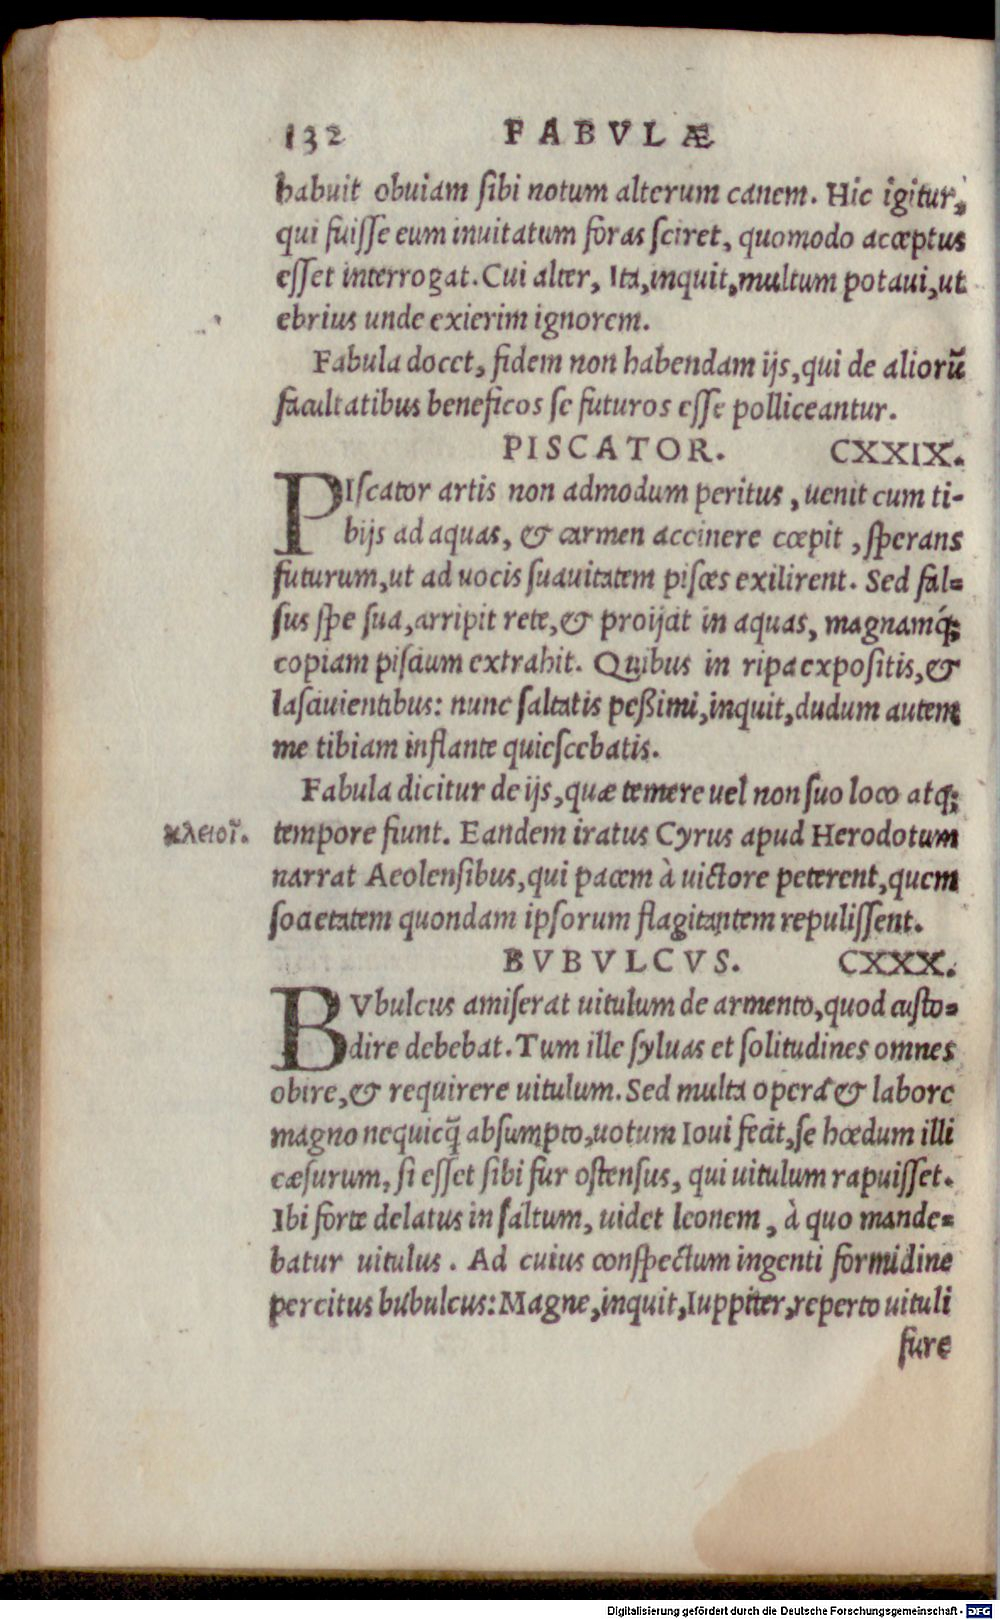 132 FABVLÆ
habuit obuiam sibi notum alterum canem. Hic igitur,
qui fuisse eum inuitatum foras sciret, quomodo acceptus
esset interrogat. Cui alter, Ita, inquit, multum potaui, ut
ebrius unde exierim ignorem.
Fabula docet, fidem non habendam ijs, qui de aliorũ
facultatibus beneficos se futuros esse polliceantur.
PISCATOR. CXXIX.
PIscator artis non admodum peritus, uenit cum ti-
bijs ad aquas, & carmen accinere cœpit, sperans
futurum, ut ad uocis suauitatem pisces exilirent. Sed fal-
sus spe sua, arripit rete, & proijcit in aquas, magnamq́;
copiam piscium extrahit. Quibus in ripa expositis, &
lasciuientibus: nunc saltatis peßimi, inquit, dudum autem
me tibiam inflante quiescebatis.
Fabula dicitur de ijs, quæ temere uel non suo loco atq;
κλειοῖ. tempore fiunt. Eandem iratus Cyrus apud Herodotum
narrat Aeolensibus, qui pacem à uictore peterent, quem
societatem quondam ipsorum flagitantem repulissent.
BVBVLCVS. CXXX.
BVbulcus amiserat uitulum de armento, quod custo-
dire debebat. Tum ille syluas et solitudines omnes
obire, & requirere uitulum. Sed multa opera & labore
magno nequicq̃ absumpto, uotum Ioui fecit, se hœdum illi
cæsurum, si esset sibi fur ostensus, qui uitulum rapuisset.
Ibi forte delatus in saltum, uidet leonem, à quo mande-
batur uitulus. Ad cuius conspectum ingenti formidine
percitus bubulcus: Magne, inquit, Iuppiter, reperto uituli
fure
Digitalisierung gefördert durch die Deutsche Forschungsgemeinschaft - DFG